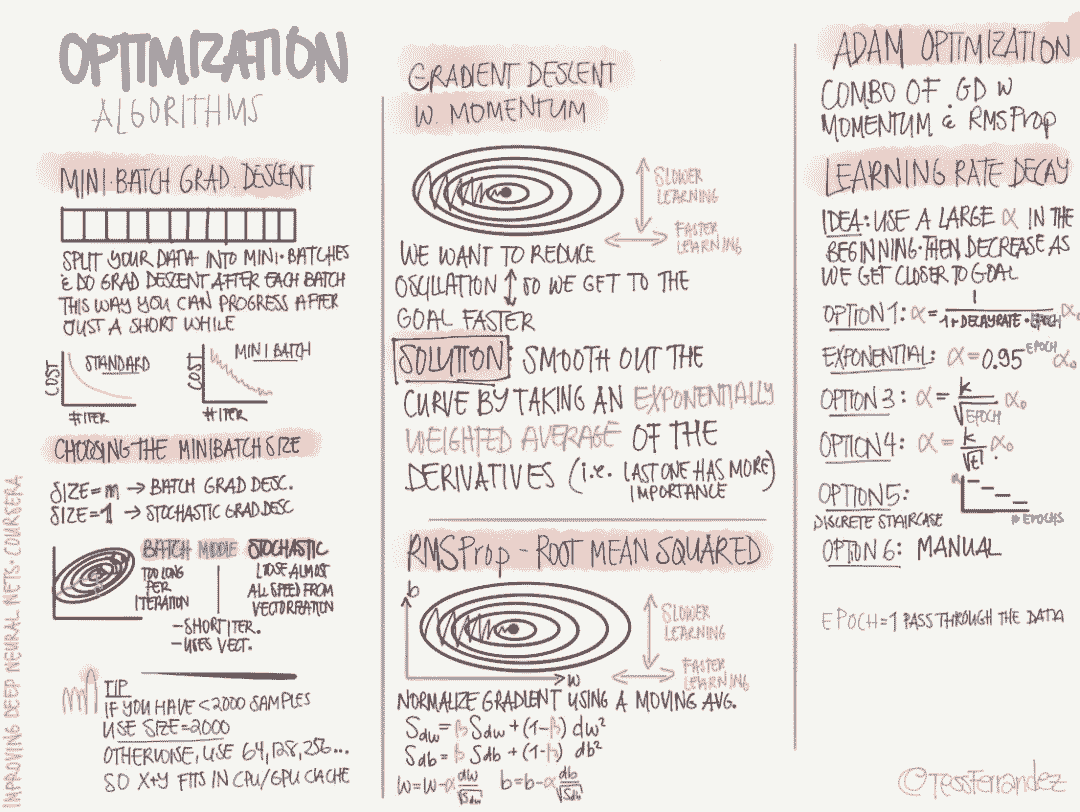 OPTIMIZATION
ALGORITHMS
MINI·BATCH GRAD. DESCENT
SPLIT YOUR DATA INTO MINI·BATCHES
& DO GRAD DESCENT AFTER EACH BATCH
THIS WAY YOU CAN PROGRESS AFTER
JUST A SHORT WHILE
COST
STANDARD
# ITER
COST
MINI BATCH
# ITER
CHOOSING THE MINIBATCH SIZE
SIZE=m → BATCH GRAD DESC.
SIZE=1 → STOCHASTIC GRAD DESC
BATCH MODE
TOO LONG
PER
ITERATION
STOCHASTIC
LOSE ALMOST
ALL SPEED FROM
VECTORIZATION
-SHORT ITER.
-USES VECT.
TIP
IF YOU HAVE <2000 SAMPLES
USE SIZE=2000
OTHERWISE, USE 64,128,256...
SO X+Y FITS IN CPU/GPU CACHE
IMPROVING DEEP NEURAL NETS · COURSERA
GRADIENT DESCENT
W. MOMENTUM
SLOWER
LEARNING
FASTER
LEARNING
WE WANT TO REDUCE
OSCILLATION ↕ SO WE GET TO THE
GOAL FASTER
SOLUTION: SMOOTH OUT THE
CURVE BY TAKING AN EXPONENTIALLY
WEIGHTED AVERAGE OF THE
DERIVATIVES (i.e. LAST ONE HAS MORE)
IMPORTANCE
RMSProp - ROOT MEAN SQUARED
b
w
SLOWER
LEARNING
FASTER
LEARNING
NORMALIZE GRADIENT USING A MOVING AVG.
Sdw = β Sdw + (1-β) dw²
Sdb = β Sdb + (1-β) db²
w=w-α dw/√Sdw b=b-α db/√Sdb
ADAM OPTIMIZATION
COMBO OF GD W
MOMENTUM & RMSProp
LEARNING RATE DECAY
IDEA: USE A LARGE α IN THE
BEGINNING·THEN DECREASE AS
WE GET CLOSER TO GOAL
OPTION 1: α = 1/(1+DECAYRATE·EPOCH) α₀
EXPONENTIAL: α=0.95^EPOCH α₀
OPTION 3: α = k/√EPOCH α₀
OPTION 4: α = k/√t α₀.
OPTION 5:
DISCRETE STAIRCASE
# EPOCHS
OPTION 6: MANUAL
EPOCH=1 PASS THROUGH THE DATA
©TessFerrandez